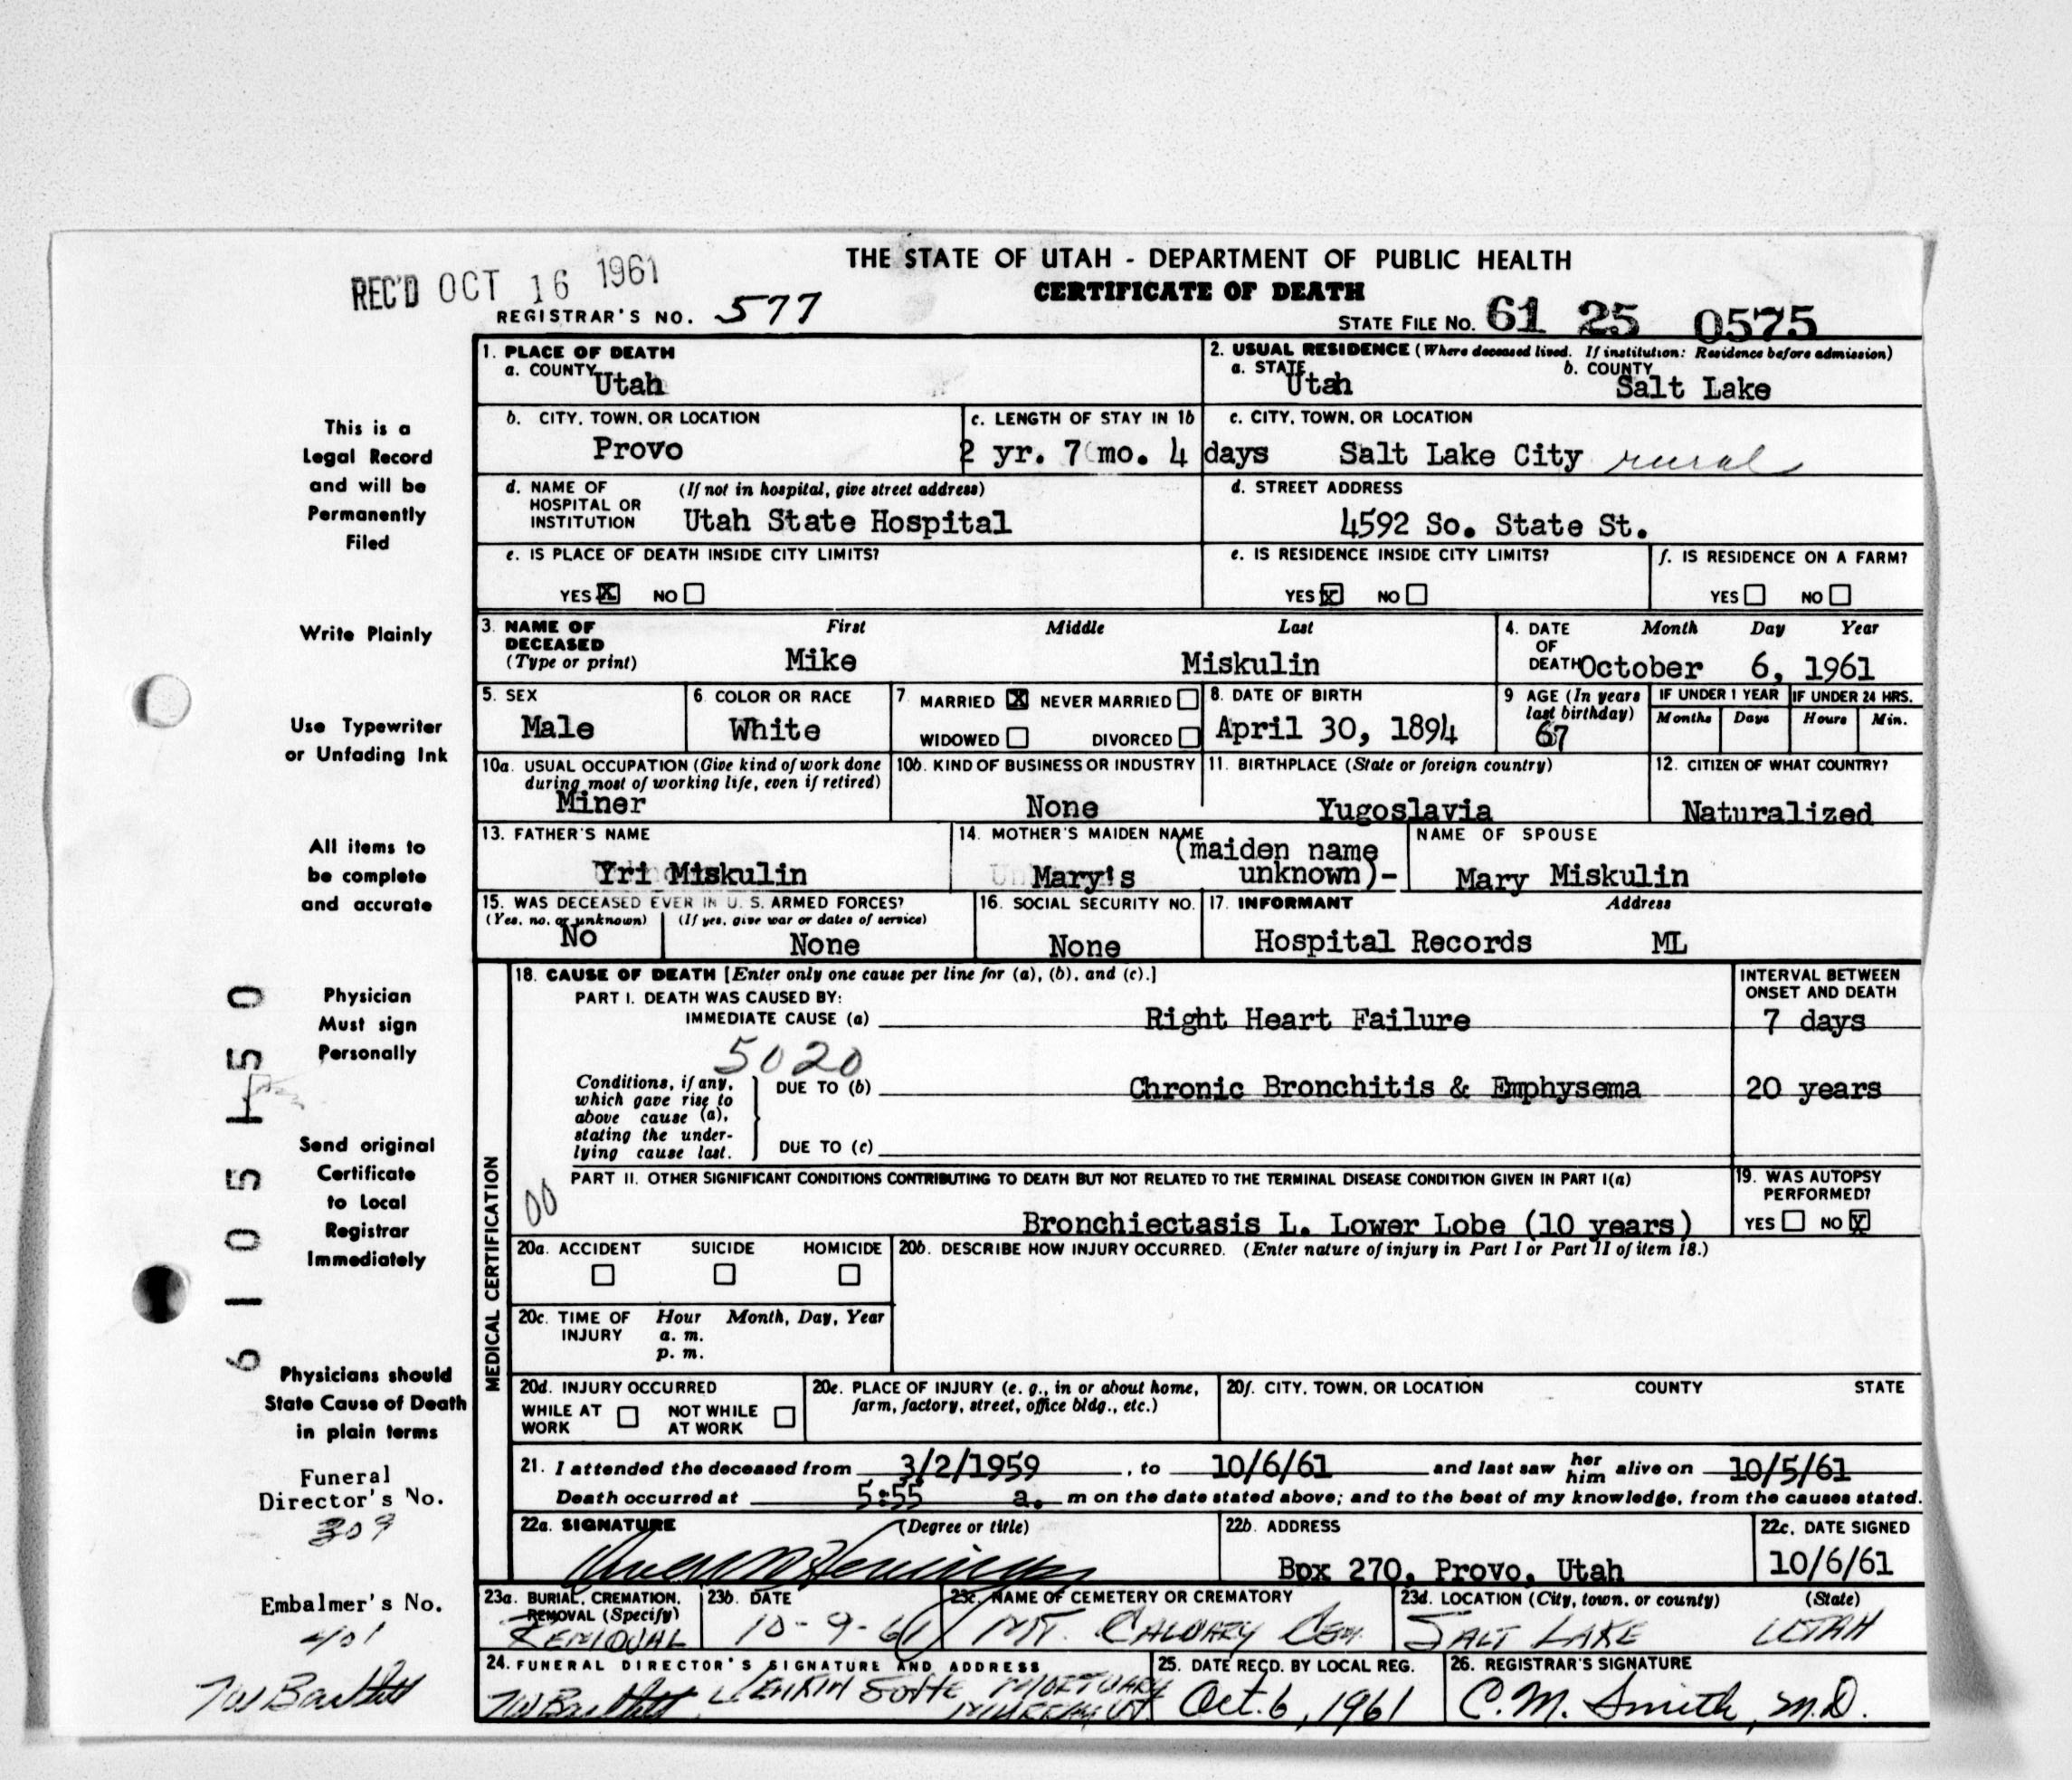 THE STATE OF UTAH - DEPARTMENT OF PUBLIC HEALTH
CERTIFICATE OF DEATH
REC'D OCT 16 1961
REGISTRAR'S NO. 577
STATE FILE NO. 61 25 0575
1. PLACE OF DEATH
a. COUNTY Utah
2. USUAL RESIDENCE (Where deceased lived. If institution: Residence before admission)
a. STATE Utah b. COUNTY Salt Lake
b. CITY, TOWN, OR LOCATION Provo
c. LENGTH OF STAY IN 1b 2 yr. 7 mo. 4 days
c. CITY, TOWN, OR LOCATION Salt Lake City rural
d. NAME OF HOSPITAL OR INSTITUTION (If not in hospital, give street address) Utah State Hospital
d. STREET ADDRESS 4592 So. State St.
e. IS PLACE OF DEATH INSIDE CITY LIMITS?
YES X NO
e. IS RESIDENCE INSIDE CITY LIMITS?
YES X NO
f. IS RESIDENCE ON A FARM?
YES NO
3. NAME OF DECEASED (Type or print) First Middle Last
Mike Miskulin
4. DATE OF DEATH Month Day Year
October 6, 1961
5. SEX Male
6. COLOR OR RACE White
7. MARRIED X NEVER MARRIED
WIDOWED DIVORCED
8. DATE OF BIRTH April 30, 1894
9 AGE (In years last birthday) 67
IF UNDER 1 YEAR Months Days
IF UNDER 24 HRS. Hours Min.
10a. USUAL OCCUPATION (Give kind of work done during most of working life, even if retired) Miner
10b. KIND OF BUSINESS OR INDUSTRY None
11. BIRTHPLACE (State or foreign country) Yugoslavia
12. CITIZEN OF WHAT COUNTRY? Naturalized
13. FATHER'S NAME Yri Miskulin
14. MOTHER'S MAIDEN NAME Mary's (maiden name unknown)-
NAME OF SPOUSE Mary Miskulin
15. WAS DECEASED EVER IN U. S. ARMED FORCES?
(Yes, no, or unknown) No (If yes, give war or dates of service) None
16. SOCIAL SECURITY NO. None
17. INFORMANT Address
Hospital Records ML
MEDICAL CERTIFICATION
18. CAUSE OF DEATH [Enter only one cause per line for (a), (b), and (c).]
INTERVAL BETWEEN ONSET AND DEATH
PART I. DEATH WAS CAUSED BY:
IMMEDIATE CAUSE (a) Right Heart Failure 7 days
5020
Conditions, if any, which gave rise to above cause (a), stating the underlying cause last.
DUE TO (b) Chronic Bronchitis & Emphysema 20 years
DUE TO (c)
PART II. OTHER SIGNIFICANT CONDITIONS CONTRIBUTING TO DEATH BUT NOT RELATED TO THE TERMINAL DISEASE CONDITION GIVEN IN PART I(a)
00
Bronchiectasis L. Lower Lobe (10 years)
19. WAS AUTOPSY PERFORMED?
YES NO X
20a. ACCIDENT SUICIDE HOMICIDE
20b. DESCRIBE HOW INJURY OCCURRED. (Enter nature of injury in Part I or Part II of item 18.)
20c. TIME OF INJURY Hour Month, Day, Year
a. m.
p. m.
20d. INJURY OCCURRED
WHILE AT WORK NOT WHILE AT WORK
20e. PLACE OF INJURY (e. g., in or about home, farm, factory, street, office bldg., etc.)
20f. CITY, TOWN, OR LOCATION COUNTY STATE
21. I attended the deceased from 3/2/1959, to 10/6/61 and last saw her him alive on 10/5/61
Death occurred at 5:55 a. m on the date stated above; and to the best of my knowledge, from the causes stated.
22a. SIGNATURE (Degree or title)
22b. ADDRESS Box 270, Provo, Utah
22c. DATE SIGNED 10/6/61
23a. BURIAL, CREMATION, REMOVAL (Specify) REMOVAL
23b. DATE 10-9-61
23c. NAME OF CEMETERY OR CREMATORY MT. CALVARY Cem.
23d. LOCATION (City, town, or county) (State)
SALT LAKE UTAH
24. FUNERAL DIRECTOR'S SIGNATURE AND ADDRESS
TW Bartlett MORTUARY
MURRAY UT
25. DATE RECD. BY LOCAL REG. Oct. 6, 1961
26. REGISTRAR'S SIGNATURE C. M. Smith, M.D.
This is a
Legal Record
and will be
Permanently
Filed
Write Plainly
Use Typewriter
or Unfading Ink
All items to
be complete
and accurate
Physician
Must sign
Personally
Send original
Certificate
to Local
Registrar
Immediately
Physicians should
State Cause of Death
in plain terms
Funeral
Director's No.
309
Embalmer's No.
401
TW Bartlett
6 1 0 5 1 5 0